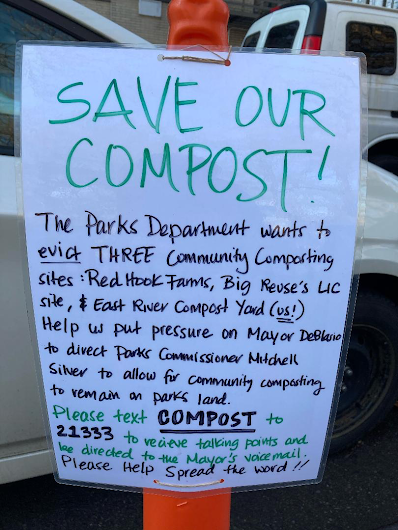 SAVE OUR
COMPOST!
The Parks Department wants to
evict THREE Community Composting
sites: Red Hook Farms, Big Reuse's LIC
site, & East River Compost Yard (us!)
Help us put pressure on Mayor DeBlasio
to direct Parks Commissioner Mitchell
Silver to allow for community composting
to remain on parks land.
Please text COMPOST to
21333 to recieve talking points and
be directed to the Mayor's voicemail.
Please Help Spread the word!!